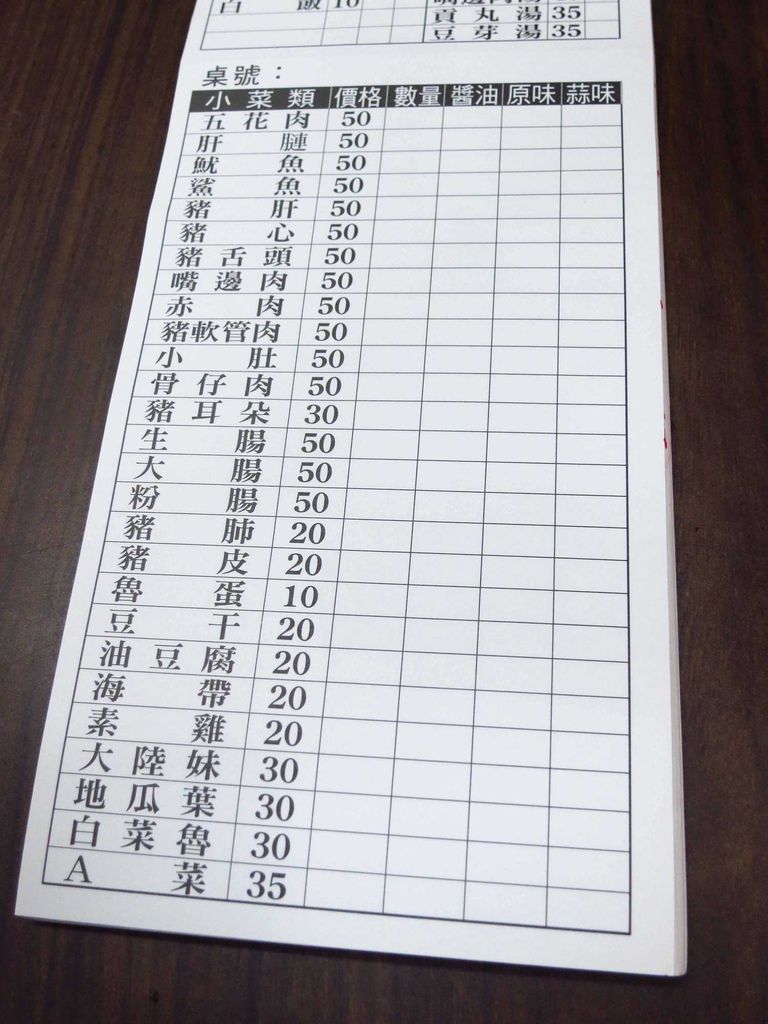 白飯 10
貢丸湯 35
豆芽湯 35
桌號：
小菜類 價格 數量 醬油 原味 蒜味
五花肉 50
肝腱 50
魷魚 50
鯊魚 50
豬肝 50
豬心 50
豬舌頭 50
嘴邊肉 50
赤肉 50
豬軟管肉 50
小肚 50
骨仔肉 50
豬耳朵 30
生腸 50
大腸 50
粉腸 50
豬肺 20
豬皮 20
魯蛋 10
豆干 20
油豆腐 20
海帶 20
素雞 20
大陸妹 30
地瓜葉 30
白菜魯 30
A菜 35